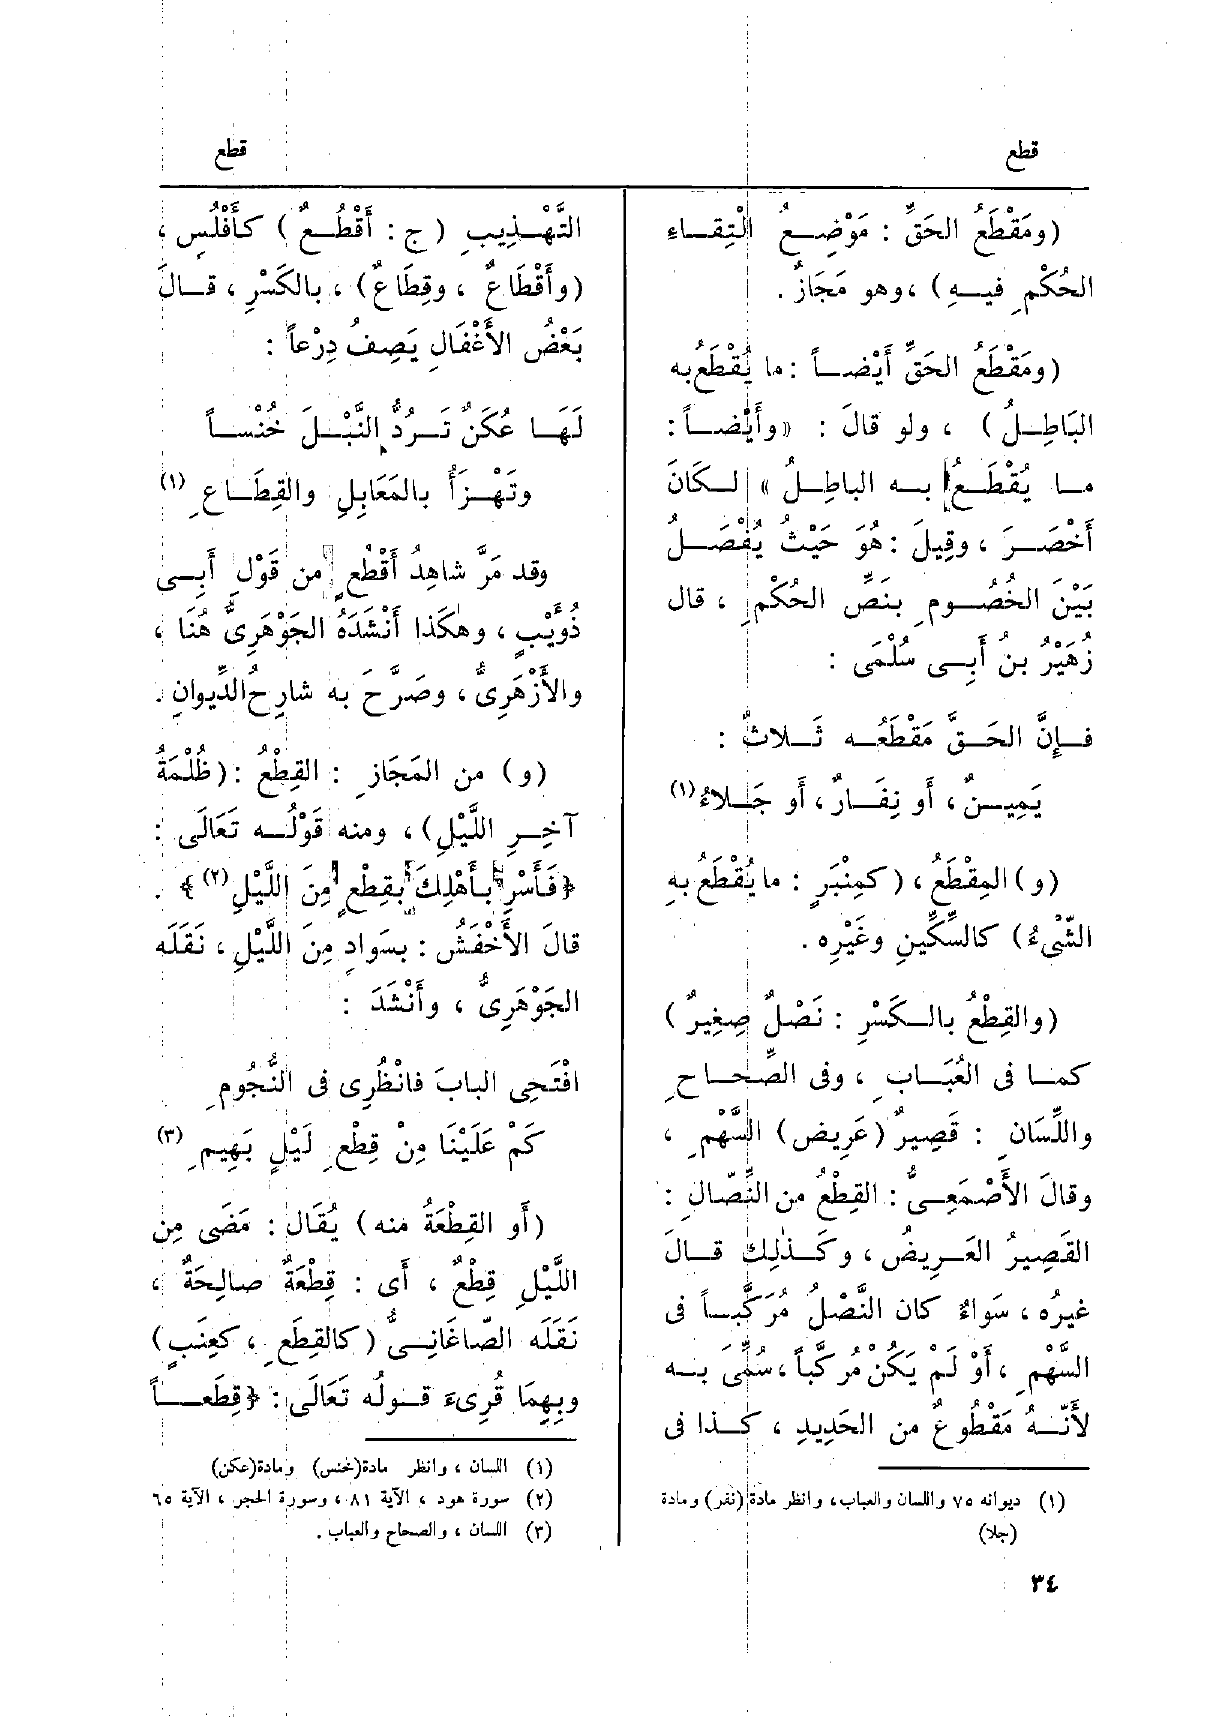 قطع
قطع
(ومَقْطَعُ الحَقِّ : مَوْضِعُ الْتِقاءِ
الحُكْمِ فيهِ) ، وهو مَجَازٌ .
(ومَقْطَعُ الحَقِّ أَيْضاً : ما يُقْطَعُ به
البَاطِلُ) ، ولو قالَ : «وأَيْضاً :
ما يُقْطَعُ به الباطِلُ» لكَانَ
أَخْصَرَ ، وقِيلَ : هُوَ حَيْثُ يُفْصَلُ
بَيْنَ الخُصُومِ بنَصِّ الحُكْمِ ، قال
زُهَيْرُ بنُ أَبِى سُلْمَى :
فإِنَّ الحَقَّ مَقْطَعُه ثَلاثٌ :
يَمِينٌ ، أو نِفَارٌ ، أو جَلاءُ (١)
(و) المِقْطَعُ ، (كمِنْبَرٍ : ما يُقْطَعُ بهِ
الشَّىْءُ) كالسِّكِّينِ وغَيْرِه .
(والقِطْعُ بالكَسْرِ : نَصْلٌ صِغِيرٌ)
كما فى العُبَابِ ، وفى الصِّحَاحِ
واللِّسَانِ : قَصِيرٌ (عَرِيض) السَّهْمِ ،
وقالَ الأَصْمَعِىُّ : القِطْعُ من النِّصَالِ :
القَصِيرُ العَرِيضُ ، وكَذٰلِكَ قالَ
غيرُه ، سَواءٌ كان النَّصْلُ مُرَكَّباً فى
السَّهْمِ ، أَوْ لَمْ يَكُنْ مُرَكَّباً ، سُمِّىَ به
لأَنَّهُ مَقْطُوعٌ من الحَدِيدِ ، كذا فى
(١) ديوانه ٧٥ واللسان والعباب، وانظر مادة (نفر) ومادة
(جلا)
٣٤
التَّهْذِيبِ (ج : أَقْطُعٌ) كأَفْلُسٍ ،
(وأَقْطَاعٌ ، وقِطَاعٌ) ، بالكَسْرِ ، قالَ
بَعْضُ الأَغْفَالِ يَصِفُ دِرْعاً :
لَهَا عُكَنٌ تَرُدُّ النَّبْلَ خُنْساً
وتَهْزَأُ بالمَعَابِلِ والقِطَاعِ (١)
وقد مَرَّ شاهِدُ أَقْطُعٍ من قَوْلِ أَبِى
ذُوَيْبٍ ، وهٰكَذا أَنْشَدَهُ الجَوْهَرِىُّ هُنَا ،
والأَزْهَرِىُّ ، وصَرَّحَ به شارِحُ الدِّيوانِ .
(و) من المَجَازِ : القِطْعُ : (ظُلْمَةُ
آخِرِ اللَّيْلِ) ، ومنه قَوْلُه تَعَالَى :
﴿فَأَسْرِ بأَهْلِكَ بقِطْعٍ مِنَ اللَّيْلِ (٢)﴾ .
قالَ الأَخْفَشُ : بسَوادٍ مِنَ اللَّيْلِ ، نَقَلَه
الجَوْهَرِىُّ ، وأَنْشَدَ :
افْتَحِى البابَ فانْظُرِى فى النُّجُومِ
كَمْ عَلَيْنَا مِنْ قِطْعِ لَيْلٍ بَهِيمِ (٣)
(أَو القِطْعَةُ منه) يُقَالُ : مَضَى مِن
اللَّيْلِ قِطْعٌ ، أَى : قِطْعَةٌ صالِحَةٌ ،
نَقَلَه الصّاغَانِىُّ (كالقِطَعِ ، كعِنَبٍ)
وبِهِمَا قُرِىءَ قولُه تَعَالَى : ﴿قِطَعاً
(١) اللسان ، وانظر مادة (خنس) ومادة (عكن)
(٢) سورة هود ، الآية ٨١ ، وسورة الحجر ، الآية ٦٥
(٣) اللسان ، والصحاح والعباب .